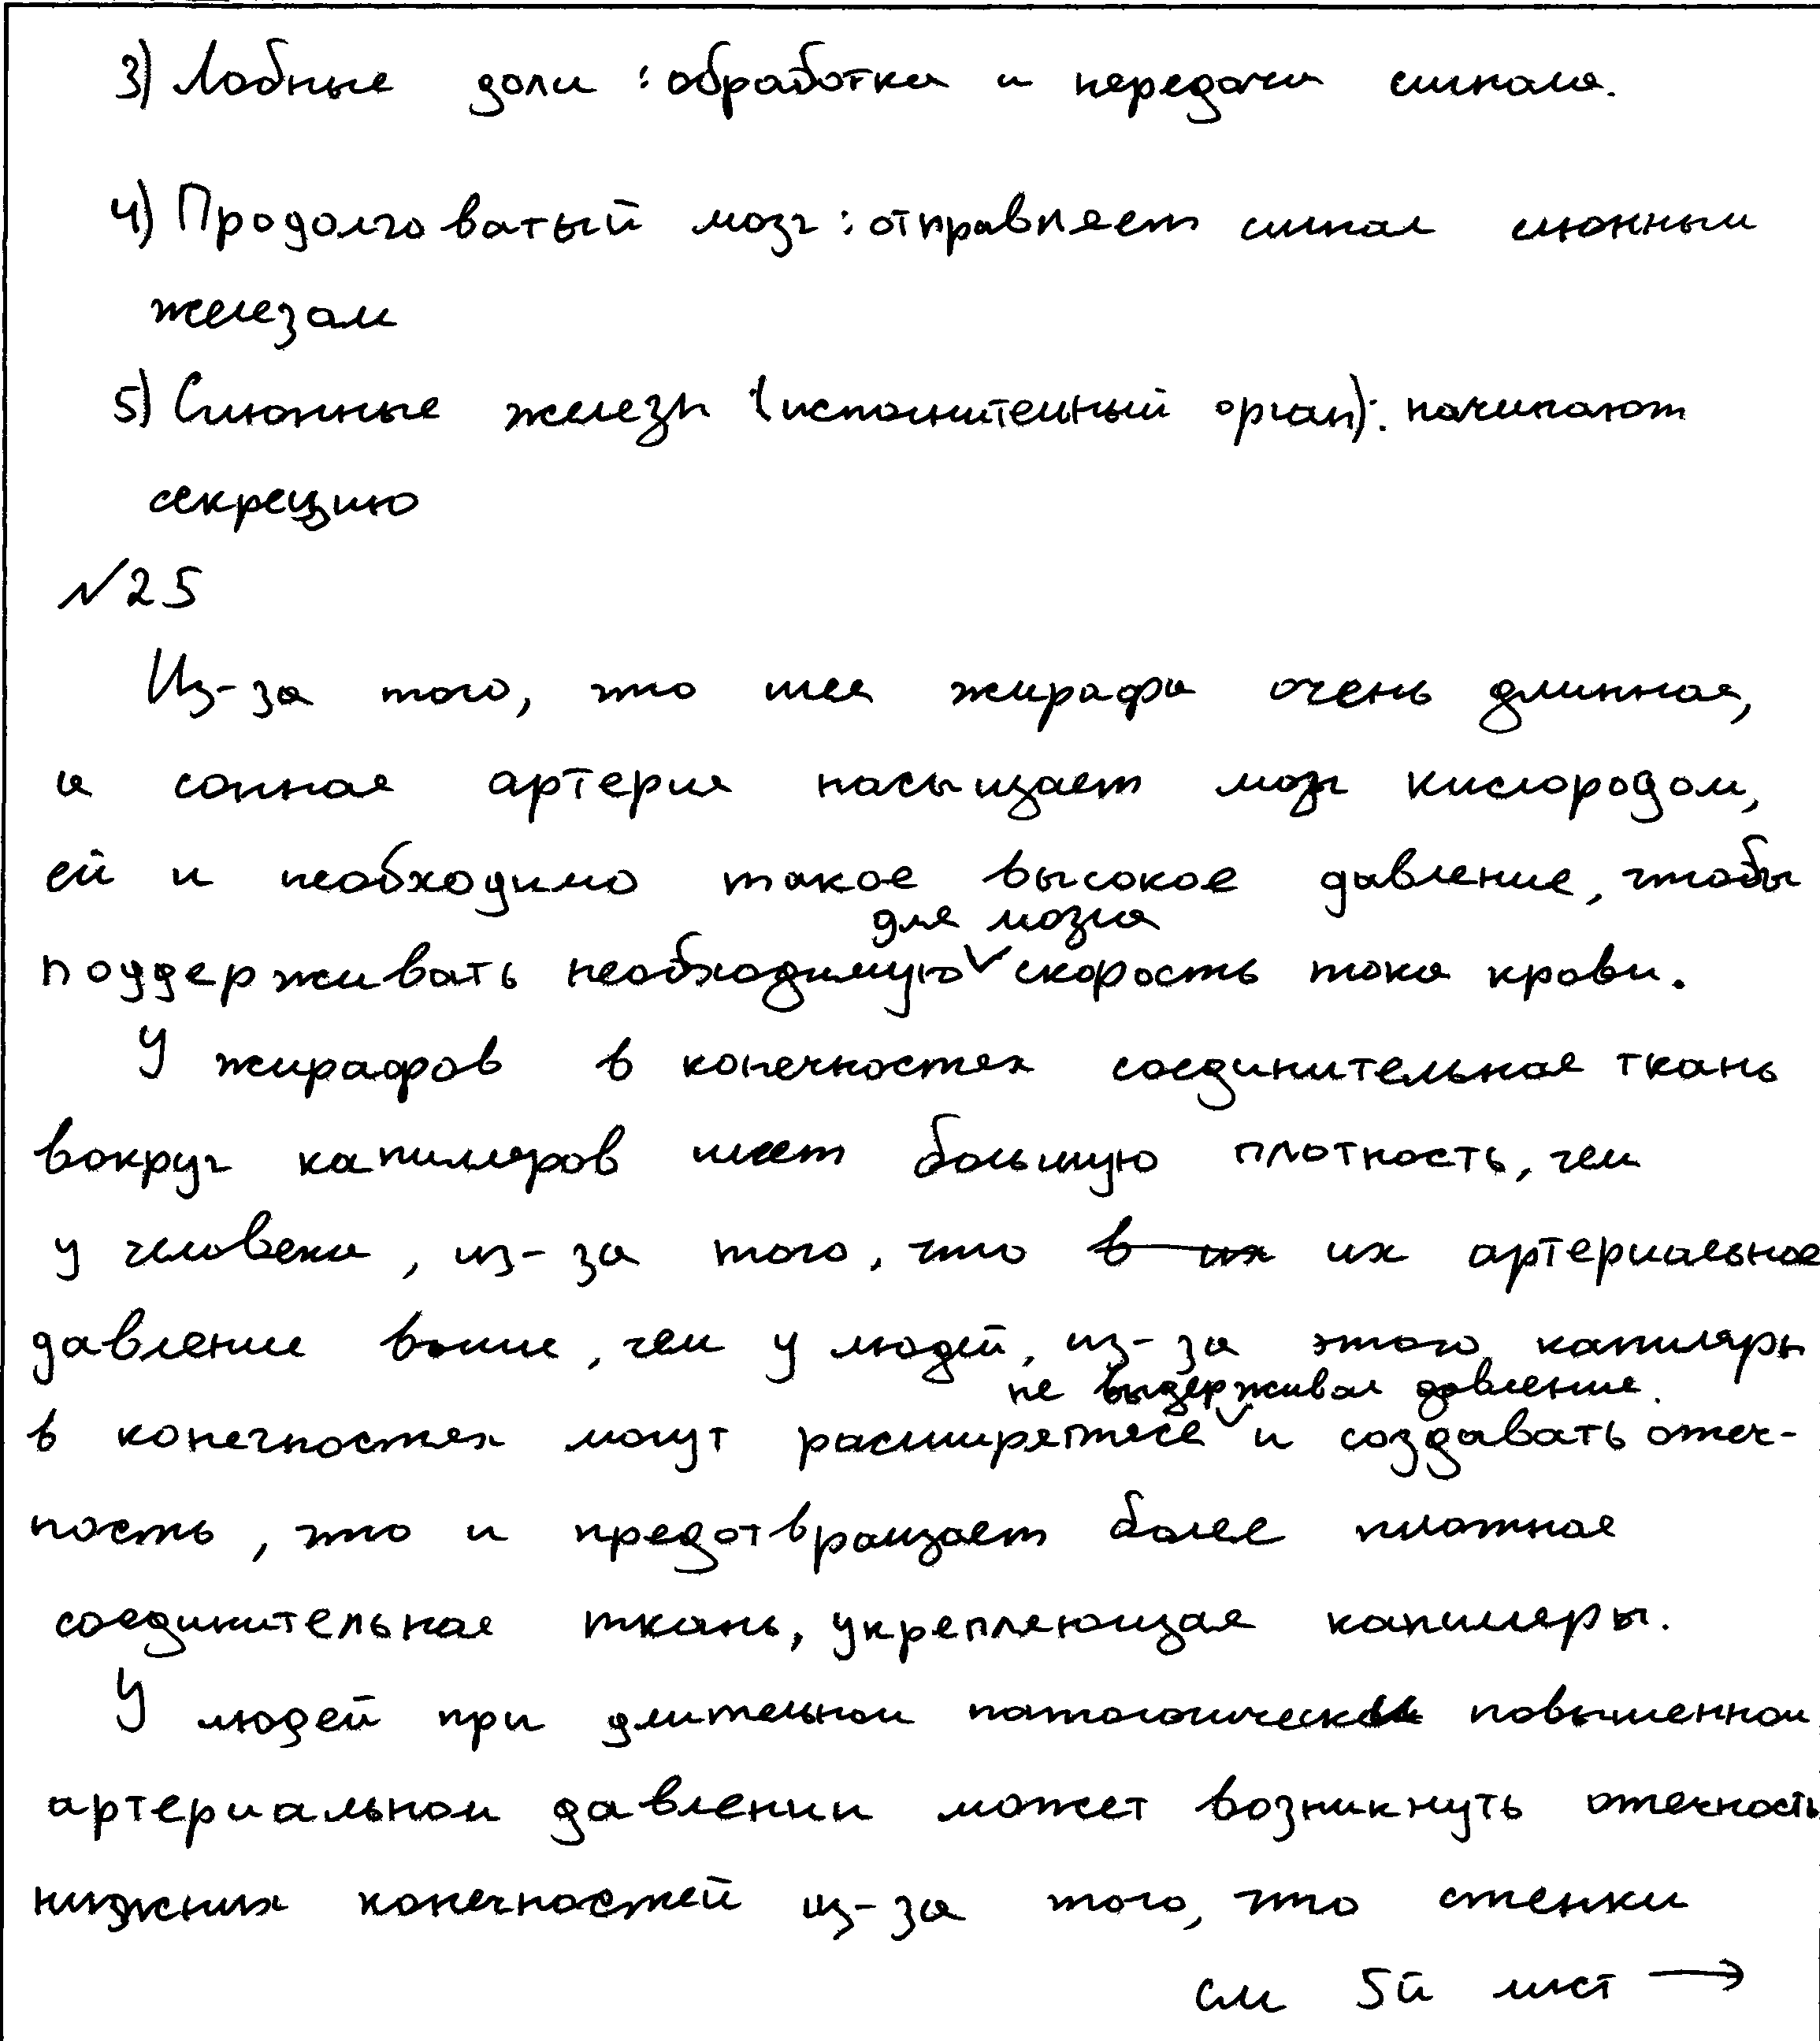 3) Лобные доли : обработка и передача сигнала.
4) Продолговатый мозг : отправляет сигнал слюнным
железам
5) Слюнные железы (исполнительный орган): начинают
секрецию
№25
Из-за того, что шея жирафа очень длинная,
а сонная артерия насыщает мозг кислородом,
ей и необходимо такое высокое давление, чтобы
для мозга
поддерживать необходимую скорость тока крови.
У жирафов в конечностях соединительная ткань
вокруг капилляров имеет большую плотность, чем
у человека, из-за того, что в их их артериальное
давление выше, чем у людей, из-за этого капиляры
не выдерживая давление.
в конечностях могут расширяться и создавать отеч-
ность, это и предотвращает более плотная
соединительная ткань, укрепляющая капилляры.
У людей при длительном патологическом повышенном
артериальном давлении может возникнуть отечность
нижних конечностей из-за того, что стенки
см 5й лист →